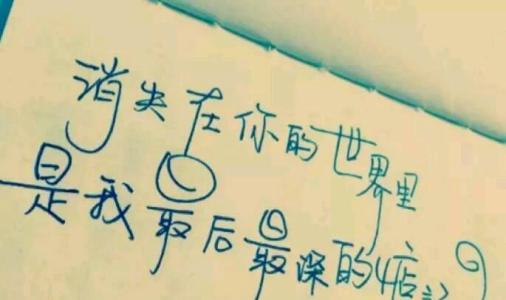 消失在你的世界里
是我最后最深的惦记